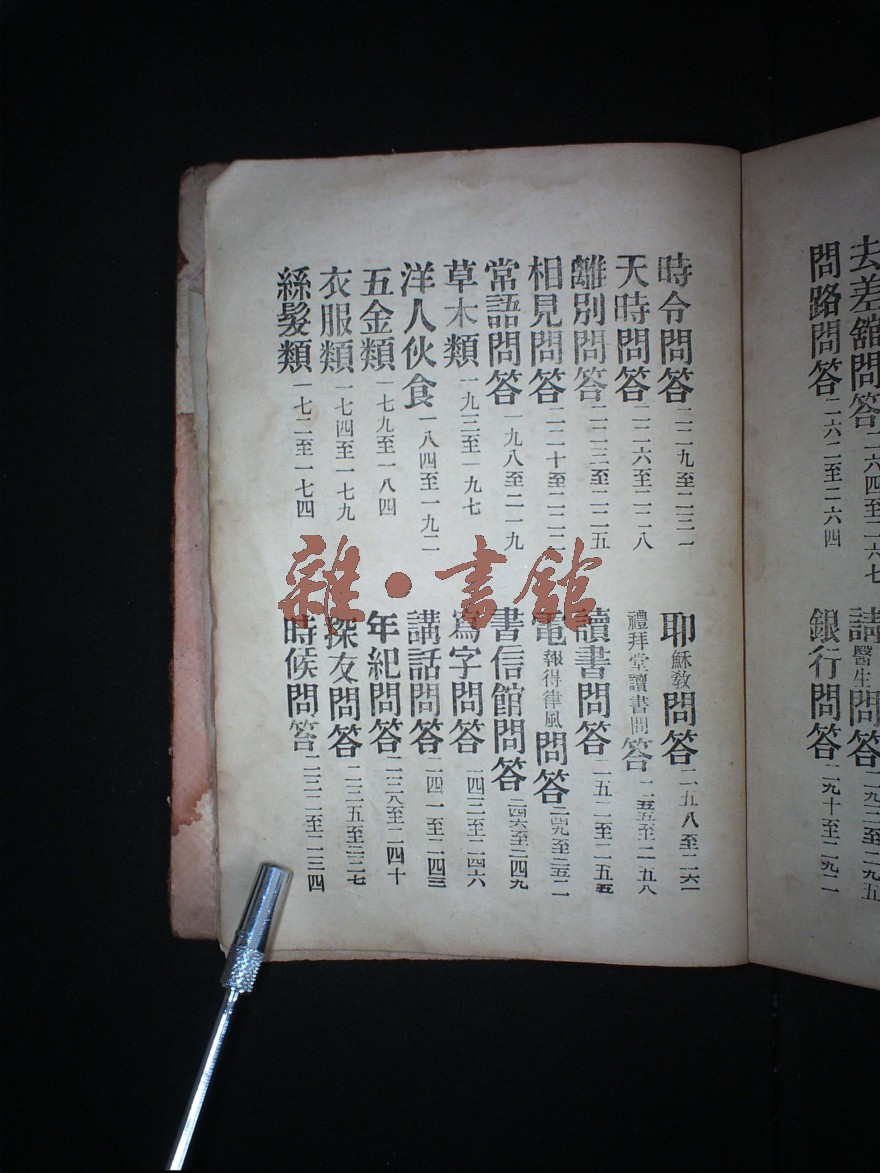 絲髮類 一七二至一七四
衣服類 一七四至一七九
五金類 一七九至一八四
洋人伙食 一八四至一九二
草木類 一九三至一九七
常語問答 一九八至二一九
相見問答 二二十至二二二
離別問答 二二三至二二五
天時問答 二二六至二二八
時令問答 二二九至二三一
時候問答 二三二至二三四
探友問答 二三五至二三七
年紀問答 二三八至二四十
講話問答 二四一至二四三
寫字問答 二四三至二四六
書信館問答 二四六至二四九
電報得律風問答 二四九至二五二
讀書問答 二五二至二五五
禮拜堂讀書問答 二五五至二五八
耶穌教問答 二五八至二六一
問路問答 二六二至二六四
去差館問答 二六四至二六七
銀行問答 二九十至二九二
請醫生問答 二九二至二九五
雜·書館